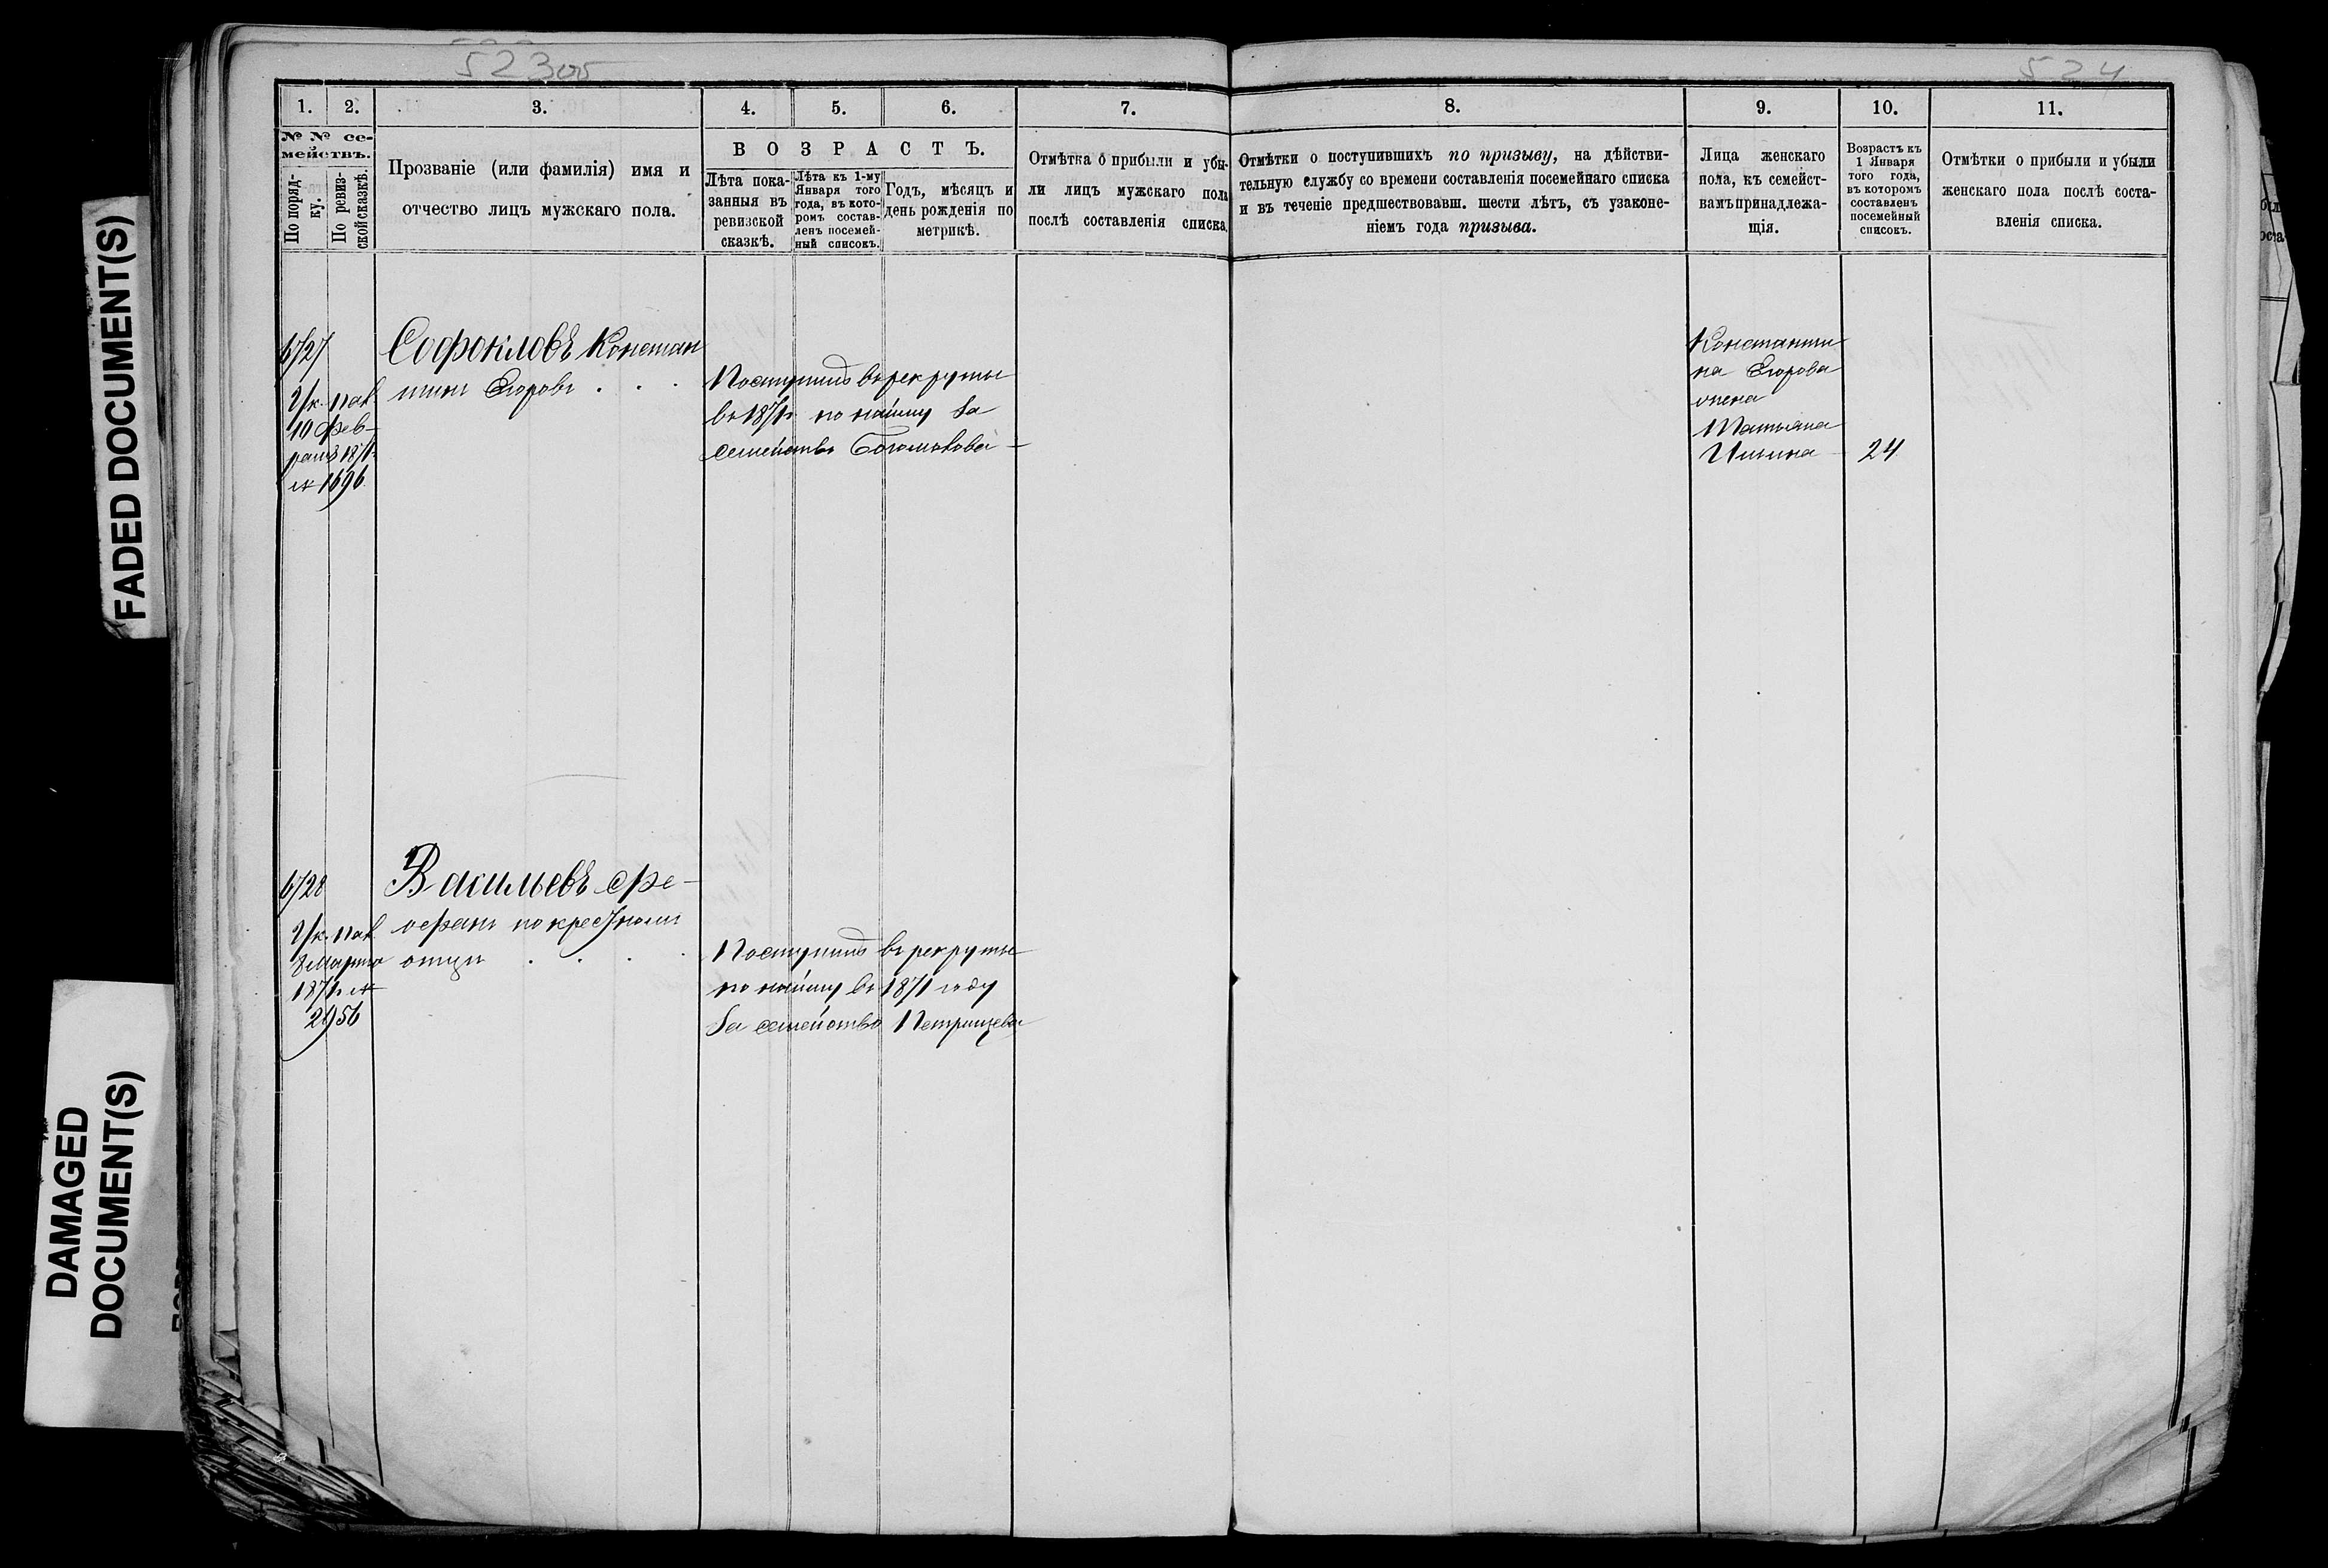 523об
524
1. 2. 3. 4. 5. 6. 7. 8. 9. 10. 11.
№ № се-
мействъ.
По поряд-
ку.
По ревиз-
ской сказкѣ.
Прозваніе (или фамилія) имя и
отчество лицъ мужскаго пола.
ВОЗРАСТЪ.
Лѣта пока-
занныя въ
ревизской
сказкѣ.
Лѣта къ 1-му
Января того
года, въ кото-
ромъ состав-
ленъ посемей-
ный списокъ.
Годъ, мѣсяцъ и
день рожденія по
метрикѣ.
Отмѣтка о прибыли и убы-
ли лицъ мужскаго пола
послѣ составленія списка.
Отмѣтки о поступившихъ по призыву, на дѣйстви-
тельную службу со времени составленія посемейнаго списка
и въ теченіе предшествовавш. шести лѣтъ, съ узаконе-
ніемъ года призыва.
Лица женскаго
пола, къ семейст-
вамъ принадлежа-
щія.
Возрастъ къ
1 Января
того года,
въ которомъ
составленъ
посемейный
списокъ.
Отмѣтки о прибыли и убыли
женскаго пола послѣ соста-
вленія списка.
6727
Ук. пал
10 фев-
раля 1871г.
№ 1696
Софокловъ Констан
тинъ Егоровъ . . .
Поступилъ въ рекруты
въ 1871г. по найму за
семейство Богомолова
Константи
на Егорова
жена
Татьяна
Ильина
24
6728
Ук. пал
8 марта
1871г. №
2956
Васильевъ Фе-
офанъ по крестному
отцу . . . .
Поступилъ въ рекруты
по найму въ 1871 году
за семейство Петрищева
FADED DOCUMENT(S)
DAMAGED
DOCUMENT(S)